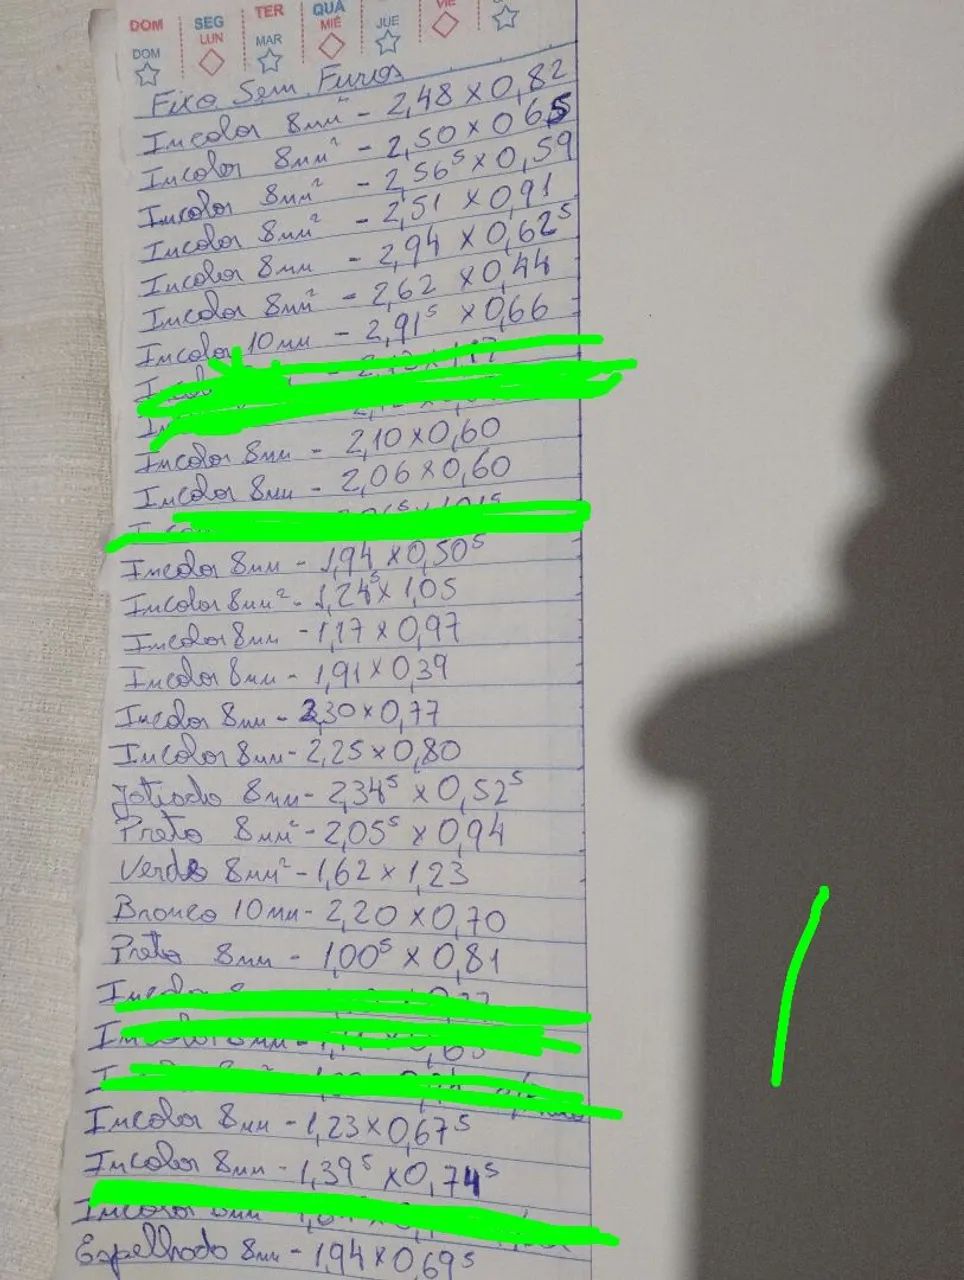 DOM SEG TER QUA
LUN MIÉ VIE
DOM MAR JUE
Fixo Sem Furos
Incolor 8mm² - 2,48 x 0,82
Incolor 8mm² - 2,50 x 0,65
Incolor 8mm² - 2,56⁵ x 0,59
Incolor 8mm² - 2,51 x 0,91
Incolor 8mm - 2,94 x 0,62⁵
Incolor 8mm² - 2,62 x 0,44
Incolor 10mm - 2,91⁵ x 0,66
Incolor 8mm - 2,10 x 0,60
Incolor 8mm - 2,06 x 0,60
Incolor 8mm - 1,94 x 0,50⁵
Incolor 8mm² - 1,24⁵ x 1,05
Incolor 8mm - 1,17 x 0,97
Incolor 8mm - 1,91 x 0,39
Incolor 8mm - 2,30 x 0,77
Incolor 8mm - 2,25 x 0,80
Jatiado 8mm - 2,34⁵ x 0,52⁵
Preto 8mm² - 2,05⁵ x 0,94
Verde 8mm² - 1,62 x 1,23
Bronco 10mm - 2,20 x 0,70
Preto 8mm - 1,00⁵ x 0,81
Incolor
Incolor 8mm -
Incolor 8mm - 1,23 x 0,67⁵
Incolor 8mm - 1,39⁵ x 0,74⁵
Incolor 8mm
Espelhado 8mm - 1,94 x 0,69⁵